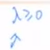 λ≥0
↗